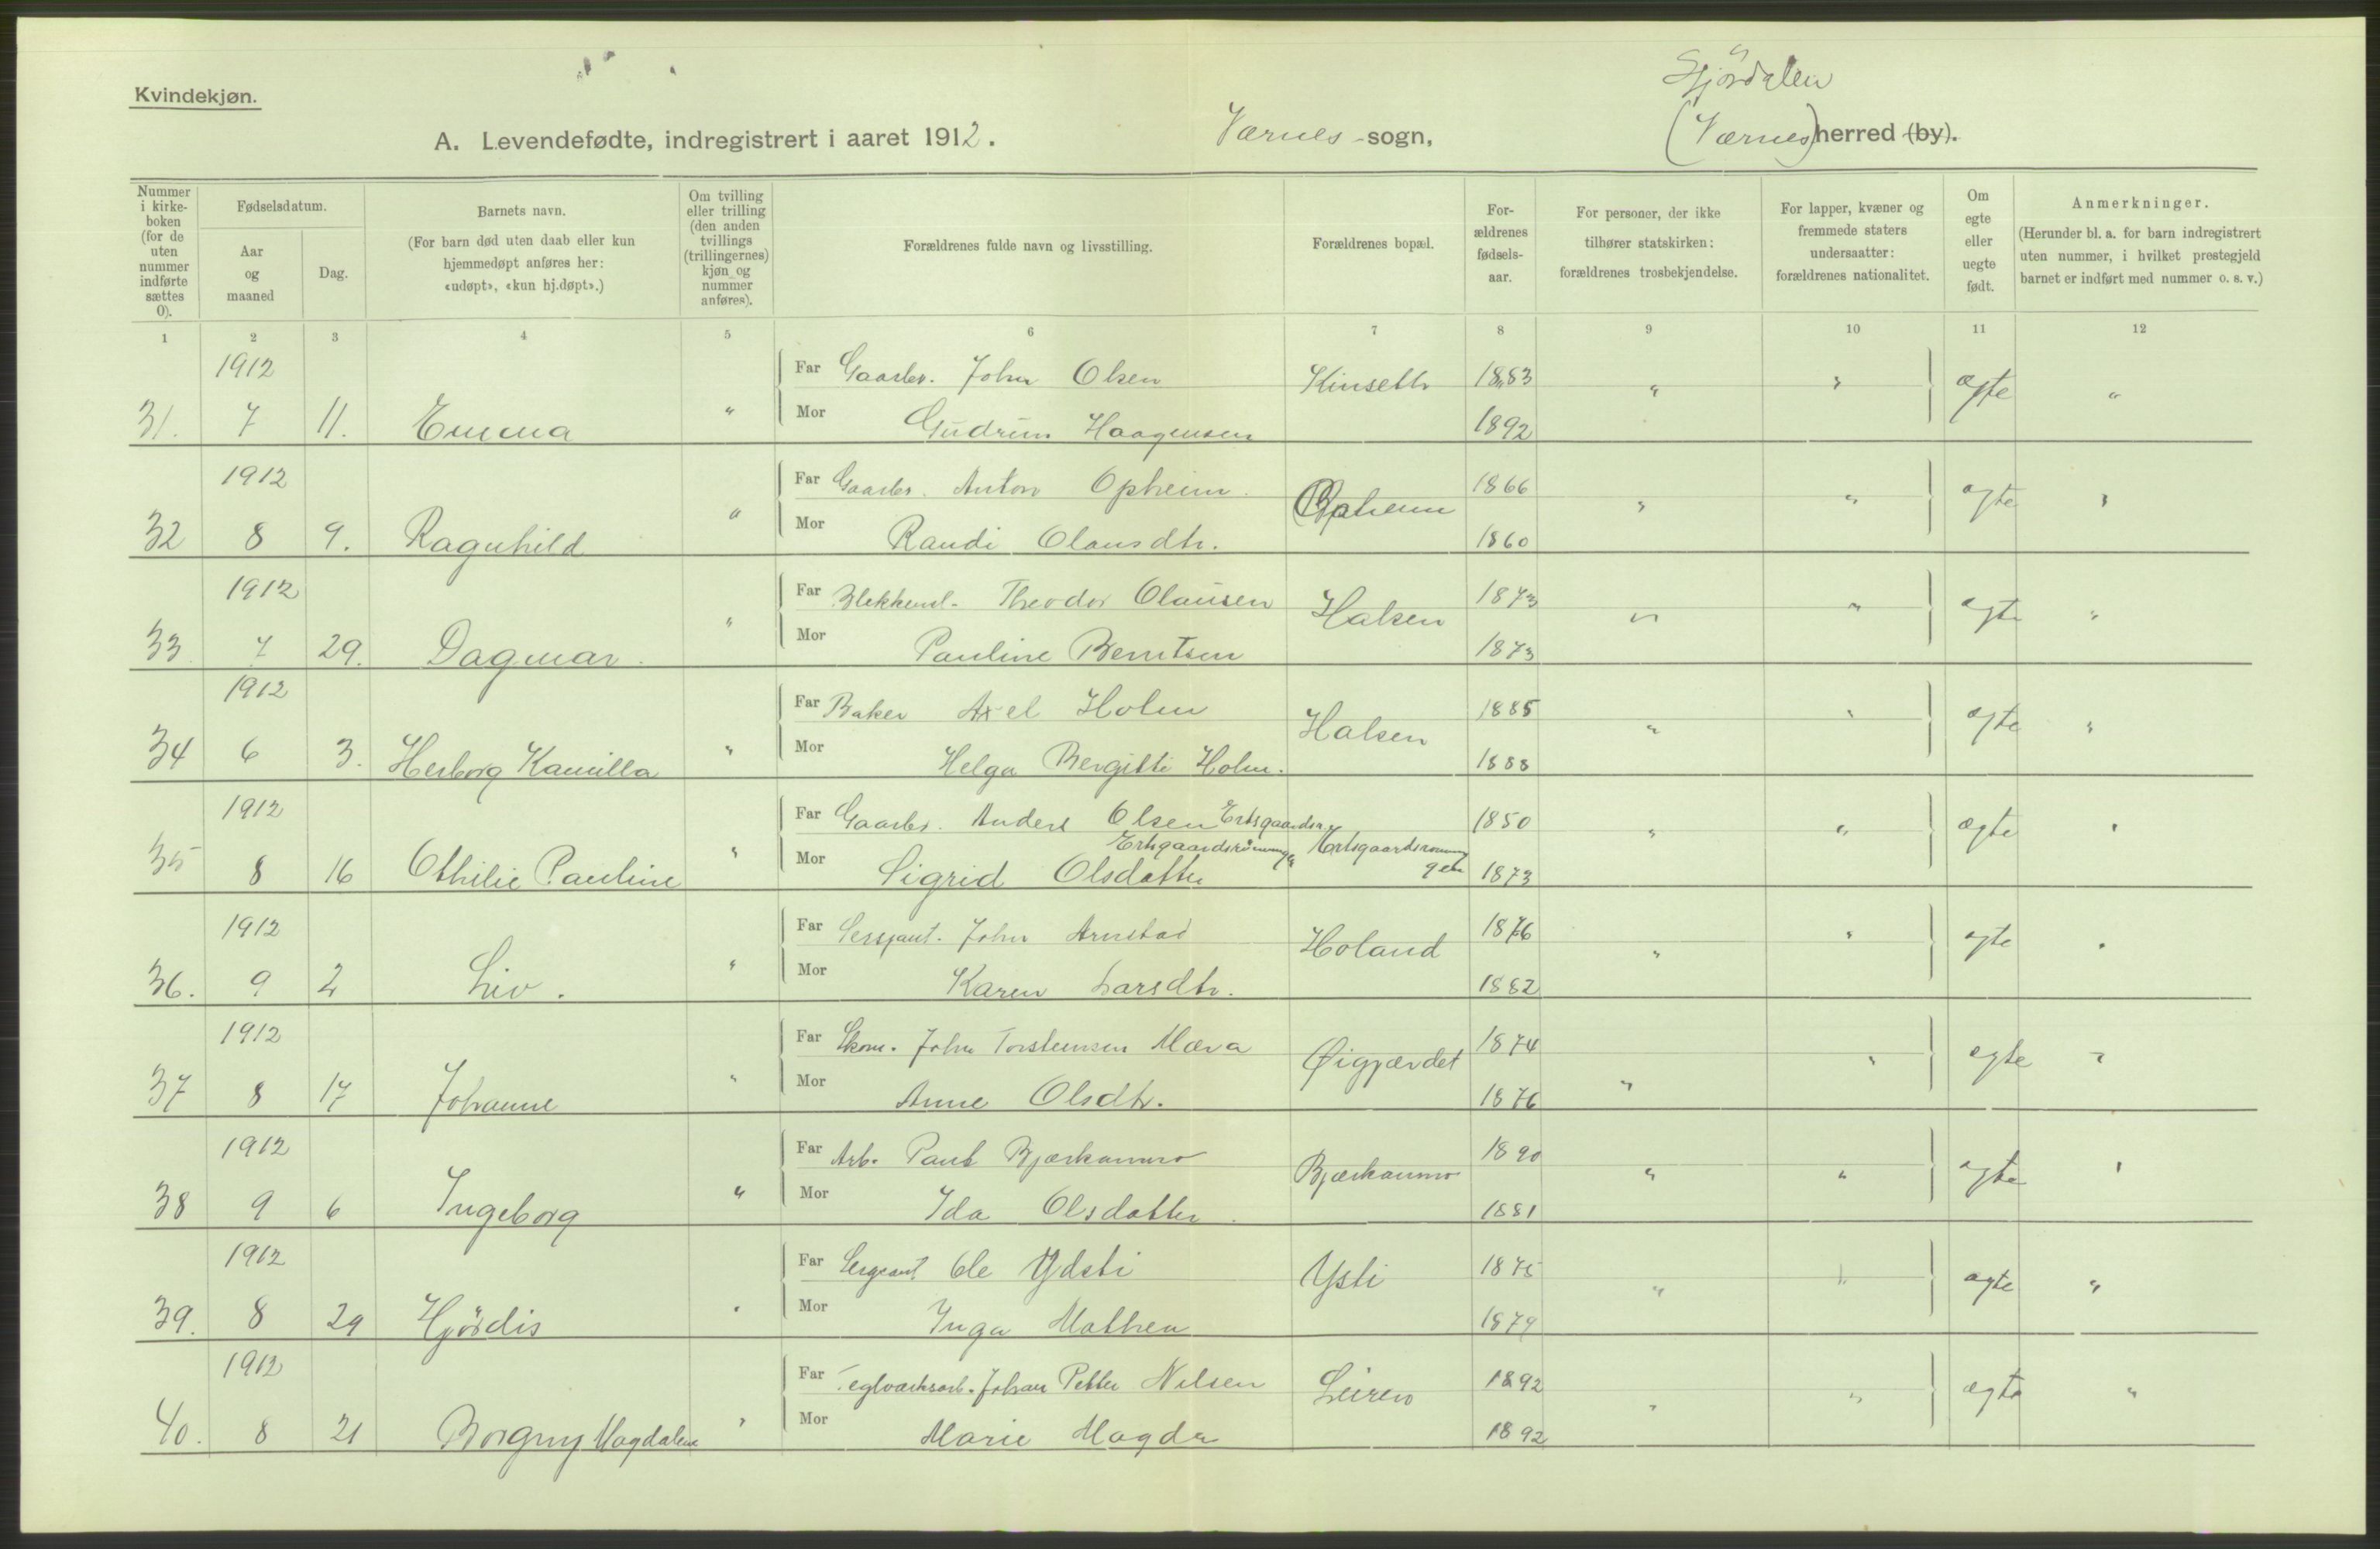 Kvindekjøn.
Stjördalen
A. Levendefødte, indregistrert i aaret 1912. Værnes sogn, (Værnes) herred (by).
Nummer i kirke-boken (for de uten nummer indførte sættes 0).
Fødselsdatum.
Aar og maaned
Dag.
Barnets navn.
(For barn død uten daab eller kun hjemmedøpt anføres her: «udøpt», «kun hj.døpt».)
Om tvilling eller trilling (den anden tvillings (trillingernes) kjøn og nummer anføres).
Forældrenes fulde navn og livsstilling.
Forældrenes bopæl.
For-ældrenes fødsels-aar.
For personer, der ikke tilhører statskirken: forældrenes trosbekjendelse.
For lapper, kvæner og fremmede staters undersaatter: forældrenes nationalitet.
Om egte eller uegte født.
Anmerkninger.
(Herunder bl. a. for barn indregistrert uten nummer, i hvilket prestegjeld barnet er indført med nummer o. s. v.)
1 2 3 4 5 6 7 8 9 10 11 12
1912 Far Gaarbr. John Olsen Kinseth 1883 " " ægte "
31. 7 11. Emma " Mor Gudrun Haagensen 1892
1912 Far Gaarbr. Anton Opheim. Opheim 1866 " " ægte "
32 8 9. Ragnhild " Mor Randi Olausdtr. 1860
1912 Far Blekkensl. Theodor Olausen Halsen 1873 " " ægte "
33 7 29. Dagmar. " Mor Pauline Berntsen 1873
1912 Far Baker Axel Holm Halsen 1885 " " ægte "
34 6 3. Herborg Kamilla " Mor Helga Bergitte Holm. 1888
1912 Far Gaarbr. Anders Olsen 1850 " " ægte "
35 8 16 Othilie Pauline " Mor Sigrid Olsdatter 1873
1912 Far Sersjant. John Arnstad Holand 1876 " " ægte "
36. 9 2 Liv. " Mor Karen Larsdtr. 1882
1912 Far Skom. John Torsteinsen Mæra Øigjærdet 1874 " " ægte "
37 8 17 Johanne " Mor Anne Olsdtr. 1876
1912 Far Arb. Paul Bjørkanmo Bjørkanmo 1890 " " ægte "
38 9 6 Ingeborg " Mor Ida Olsdatter 1881
1912 Far Sergeant Ole Ydsti Ysti 1875 " " ægte "
39. 8 29 Hjördis " Mor Inga Mathea 1879
1912 Far Teglværksarb. Johan Petter Nilsen Leiren 1892 " " ægte "
40. 8 21 Borgny Magdalene " Mor Marie Magda 1892